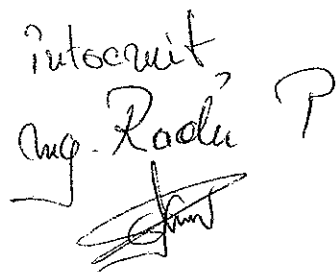 întocmit
ing. Radu P